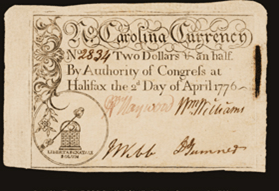 No. Carolina Currency
No. 2834 Two Dollars & an half.
By Authority of Congress at
Halifax the 2d Day of April 1776
Wm Haywood Wm Williams
Webb D Sumner